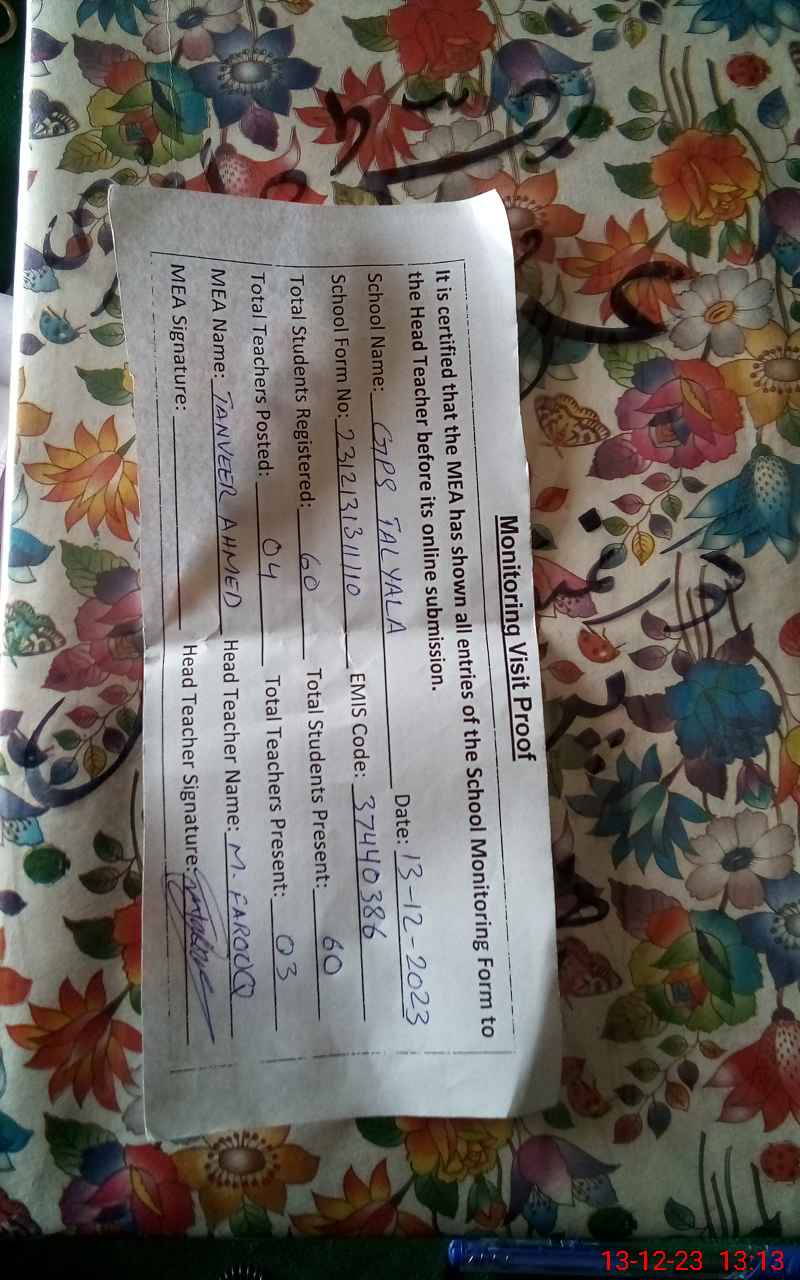 Monitoring Visit Proof
It is certified that the MEA has shown all entries of the School Monitoring Form to
the Head Teacher before its online submission.
School Name: GPS TALYALA Date: 13-12-2023
School Form No: 231213131110 EMIS Code: 37440386
Total Students Registered: 60 Total Students Present: 60
Total Teachers Posted: 04 Total Teachers Present: 03
MEA Name: TANVEER AHMED Head Teacher Name: M. FAROOQ
MEA Signature: Head Teacher Signature:
13-12-23 13:13